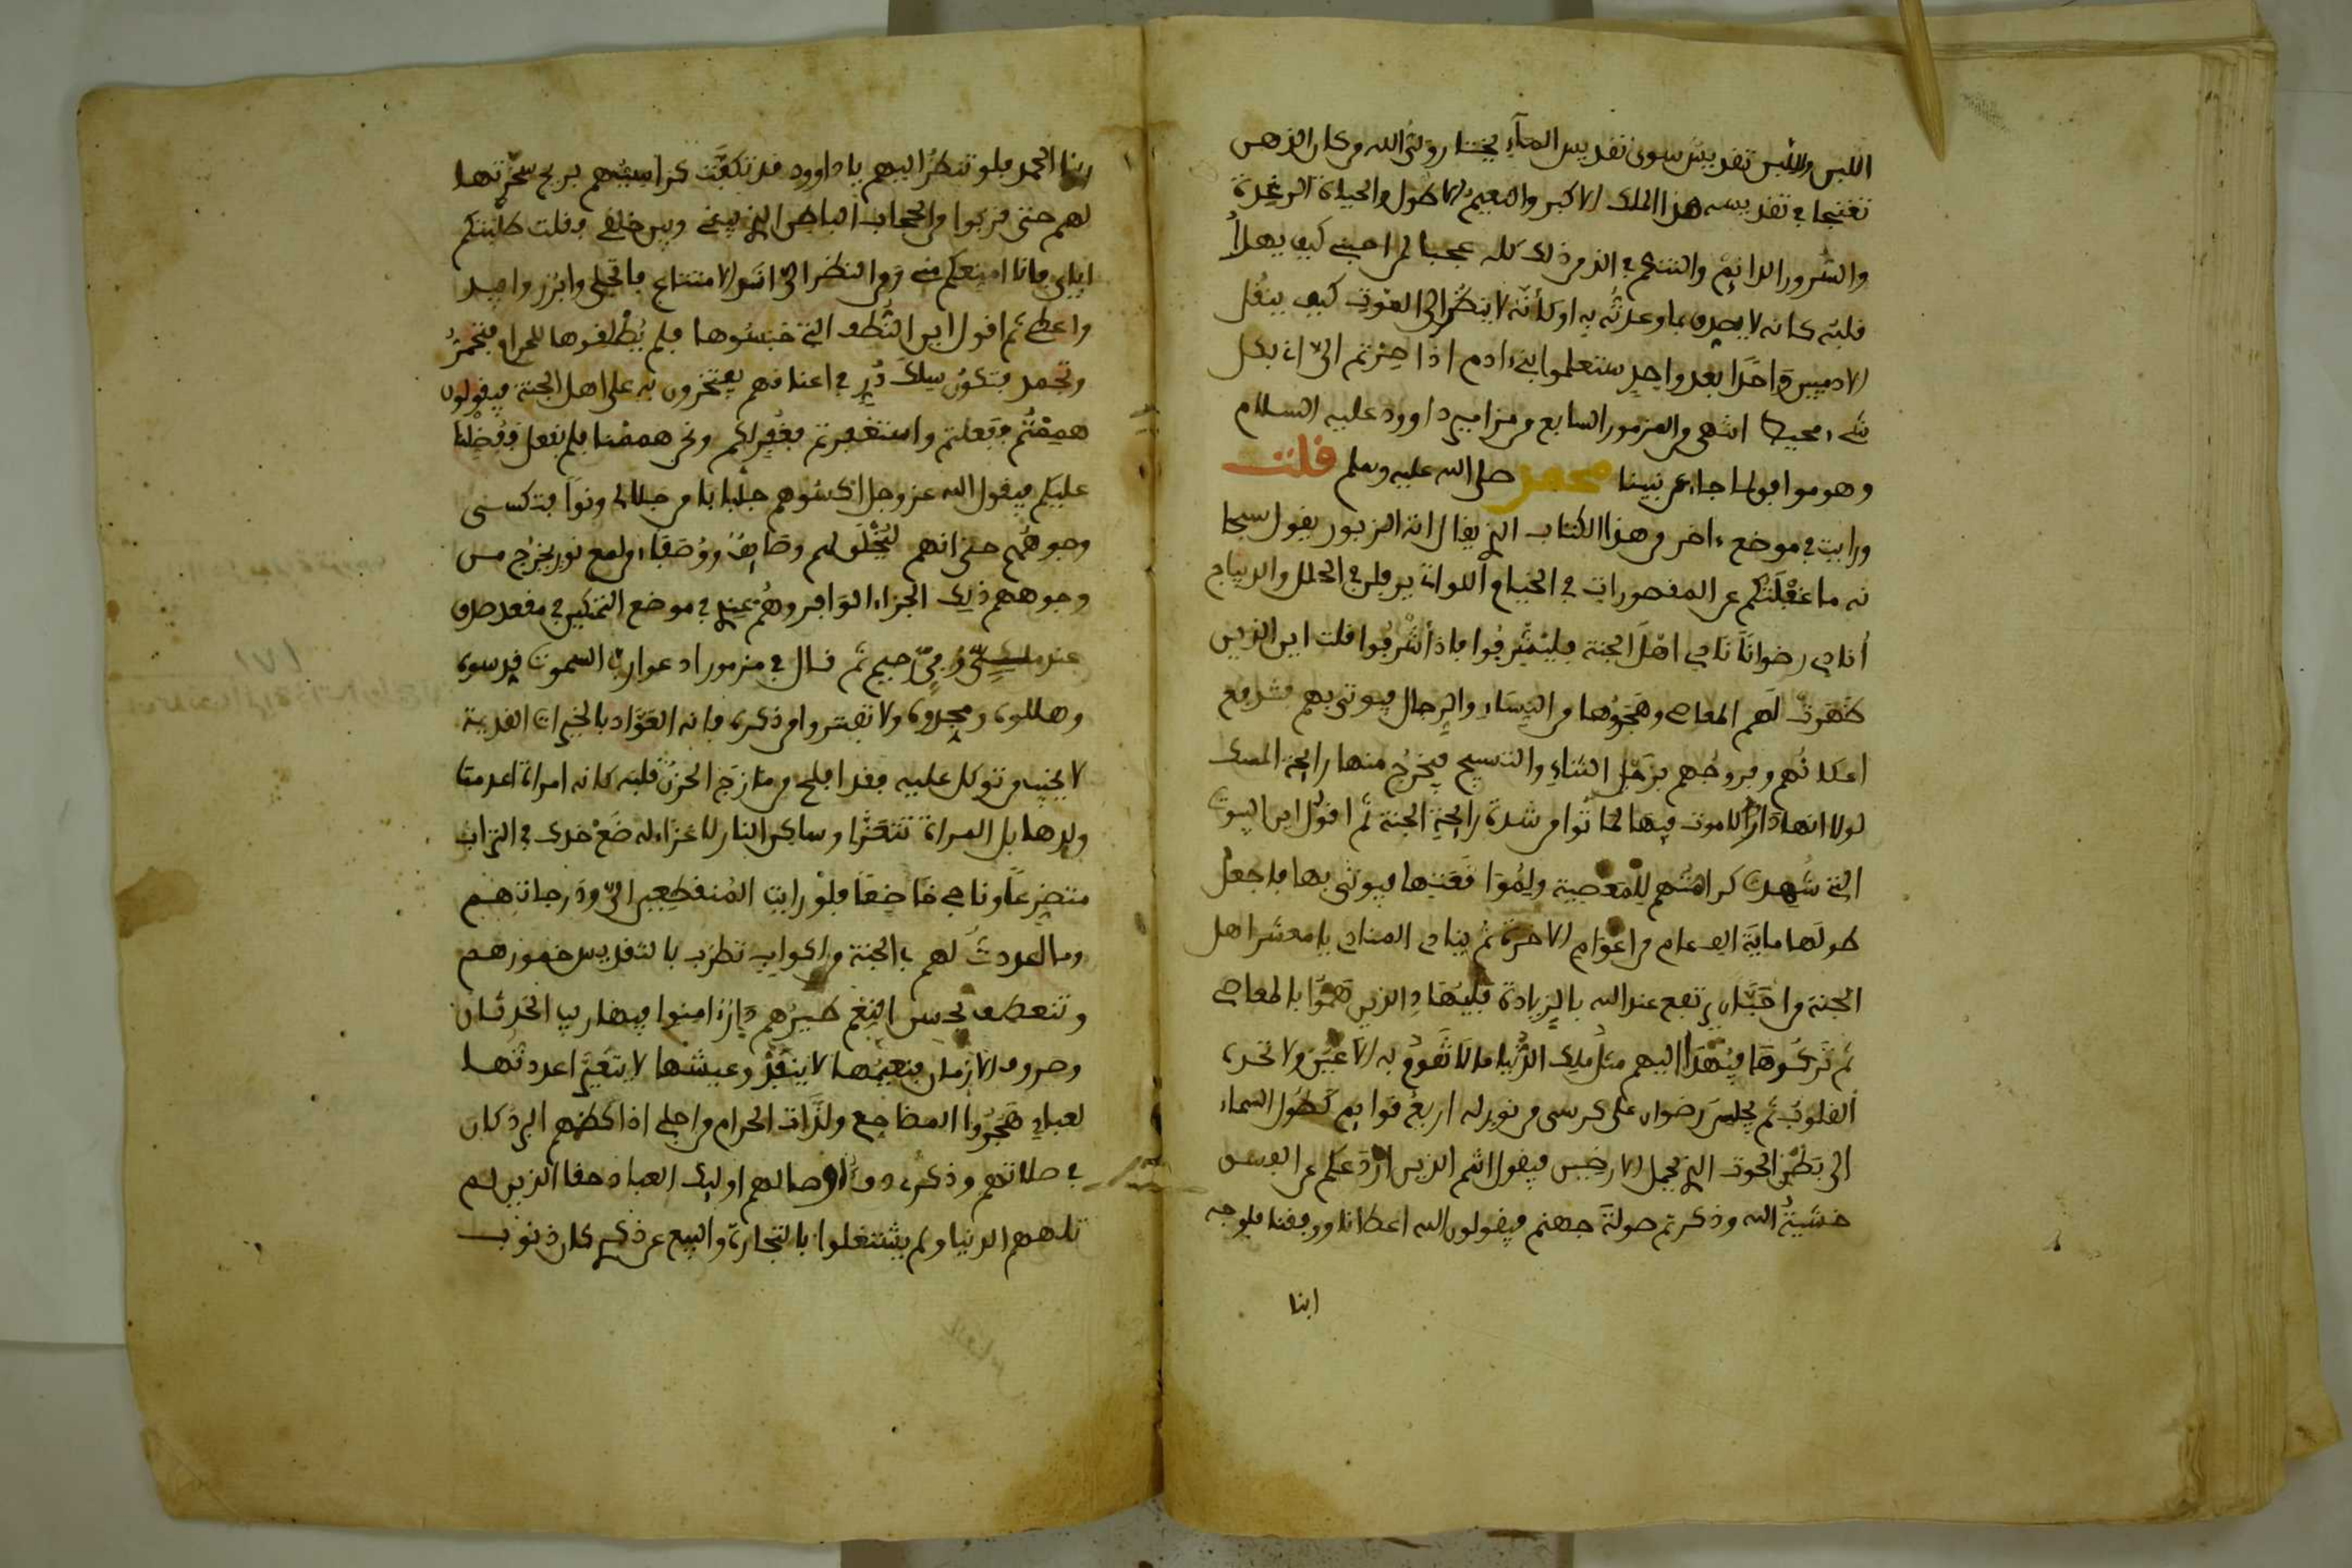 اللبس واللبس تقديس سوى تقديس الماء يختار رؤيتي الله من كان الذهب
في تقديسه هذا الملك الأكبر والنعيم الأطول والحياة الرغدة
والسرور الدائم والتنعم الذ من ذلك كله عجبا لمن احبني كيف يهدأ
قلبه كانه لا يصدق بما وعدته به او كأنه لا ينظر الى الموت كيف ينقل
الادميين واحدا بعد واحد ستعلموا بني ءادم اذا صرتم الى ان بكل
شيء محيط انتهى من المزمور السابع من مزامير داوود عليه السلام
وهو موافق لما جاء عن نبينا محمد صلى الله عليه وسلم قلت
ورايت في موضع ءاخر من هذا الكتاب الذي يقال انه الزبور يقول سبحا
نه ما غفلتكم عن المقصورات في الخيام اللوات يرفلن في الحلل والديباج
أنادي رضوانا نادي اهل الجنة فليشرفوا فاذا أشرفوا قلت اين الذين
ظهرت لهم المعاصي وهجروها من النساء والرجال فيوتى بهم فترفع
اعكانهم وفروجهم برجل الثناء والتسبيح فيخرج منها رائحة المسك
لولا انها دار لا موت فيها لماتوا من شدة رائحة الجنة ثم اقول اين البيوت
التي شهدت كراهتهم للمعصية وليموا فعنتها فيوتى بها فاجعل
طولها ماية الف عام من اعوام الاخرة ثم ينادي المنادي يا معشر اهل
الجنة من احب ان يرتفع عند الله بالزيادة فليهاد الذين هموا بالمعاصي
ثم تركوها فيهدا اليهم مثل ملك الدنيا ما لا تقوم به الاعين ولا تحده
القلوب ثم يجلس رضوان على كرسي من نور له اربع قوايم كطول السماء
الى بطن الحوت الذي يحمل الارضين فيقول انتم الذين ردعكم عن الفسق
خشية الله وذكرتم صولة جهنم فيقولون الله اعطانا ووفقنا فلوجه
ربنا
ربنا الحمد فلو تنظر اليهم يا داوود قد تكفت كراسيهم بريح سخرتها
لهم حتى قربوا من الحجاب الباطن الذي بيني وبين خلقي فقلت طلبتكم
اياي فانا امنعكم مني ومن النظر الي اشد الامتناع فاتجلى وابرز واصد
واعطي ثم اقول اين النطف التي حبسوها فلم يطلقوها للحرام فتجمد
وتجمد فتكون سلك در في اعناقهم يفتخرون به على اهل الجنة فيقولون
هممتم ففعلتم واستغفرتم فغفر لكم ونحن هممنا فلم نفعل ففضلنا
عليكم فيقول الله عز وجل اكسوهم جلبابا من جلالي ونورا فتكسى
وجوههم حتى انهم ليخلق لهم وصايف ووصفاء من لمع نور يخرج من
وجوههم ذلك الجزاء الوافر وهم عندي في موضع التمكين في مقعد صدق
عند مليك حي رحيم ثم قال في مزمور ادعوا رب السموت قدسوه
وهللوه ومجدوه ولا تفتروا من ذكره فانه العواد بالخيرات القديمة
لا يخيب من توكل عليه فقد افلح من مازج الحزن قلبه كانه امراة اعدمت
ولدها بل المراة تتعزا وساكن النار لا عزاء له ضع خدك في التراب
متضرعا وناجي خاضعا فلو رايت المنقطعين الي ودرجاتهم
وما اعددت لهم في الجنة من اكواب تطرب بالتقديس خمورهم
وتنعطف بحسن النغم طيرهم دار امنوا فيها ريب الحدثان
وصروف الازمان فنعيمها لا ينفد وعيشها لا يتغير اعددتها
لعباد هجروا المضاجع ولذات الحرام من اجلي اذا كظهم البرد كان
في صلاتهم وذكري دفء اوصالهم اوليك العباد حقا الذين لم
تلههم الدنيا ولم يشتغلوا بالتجارة والبيع عن ذكري كان ذنوب
١٧١